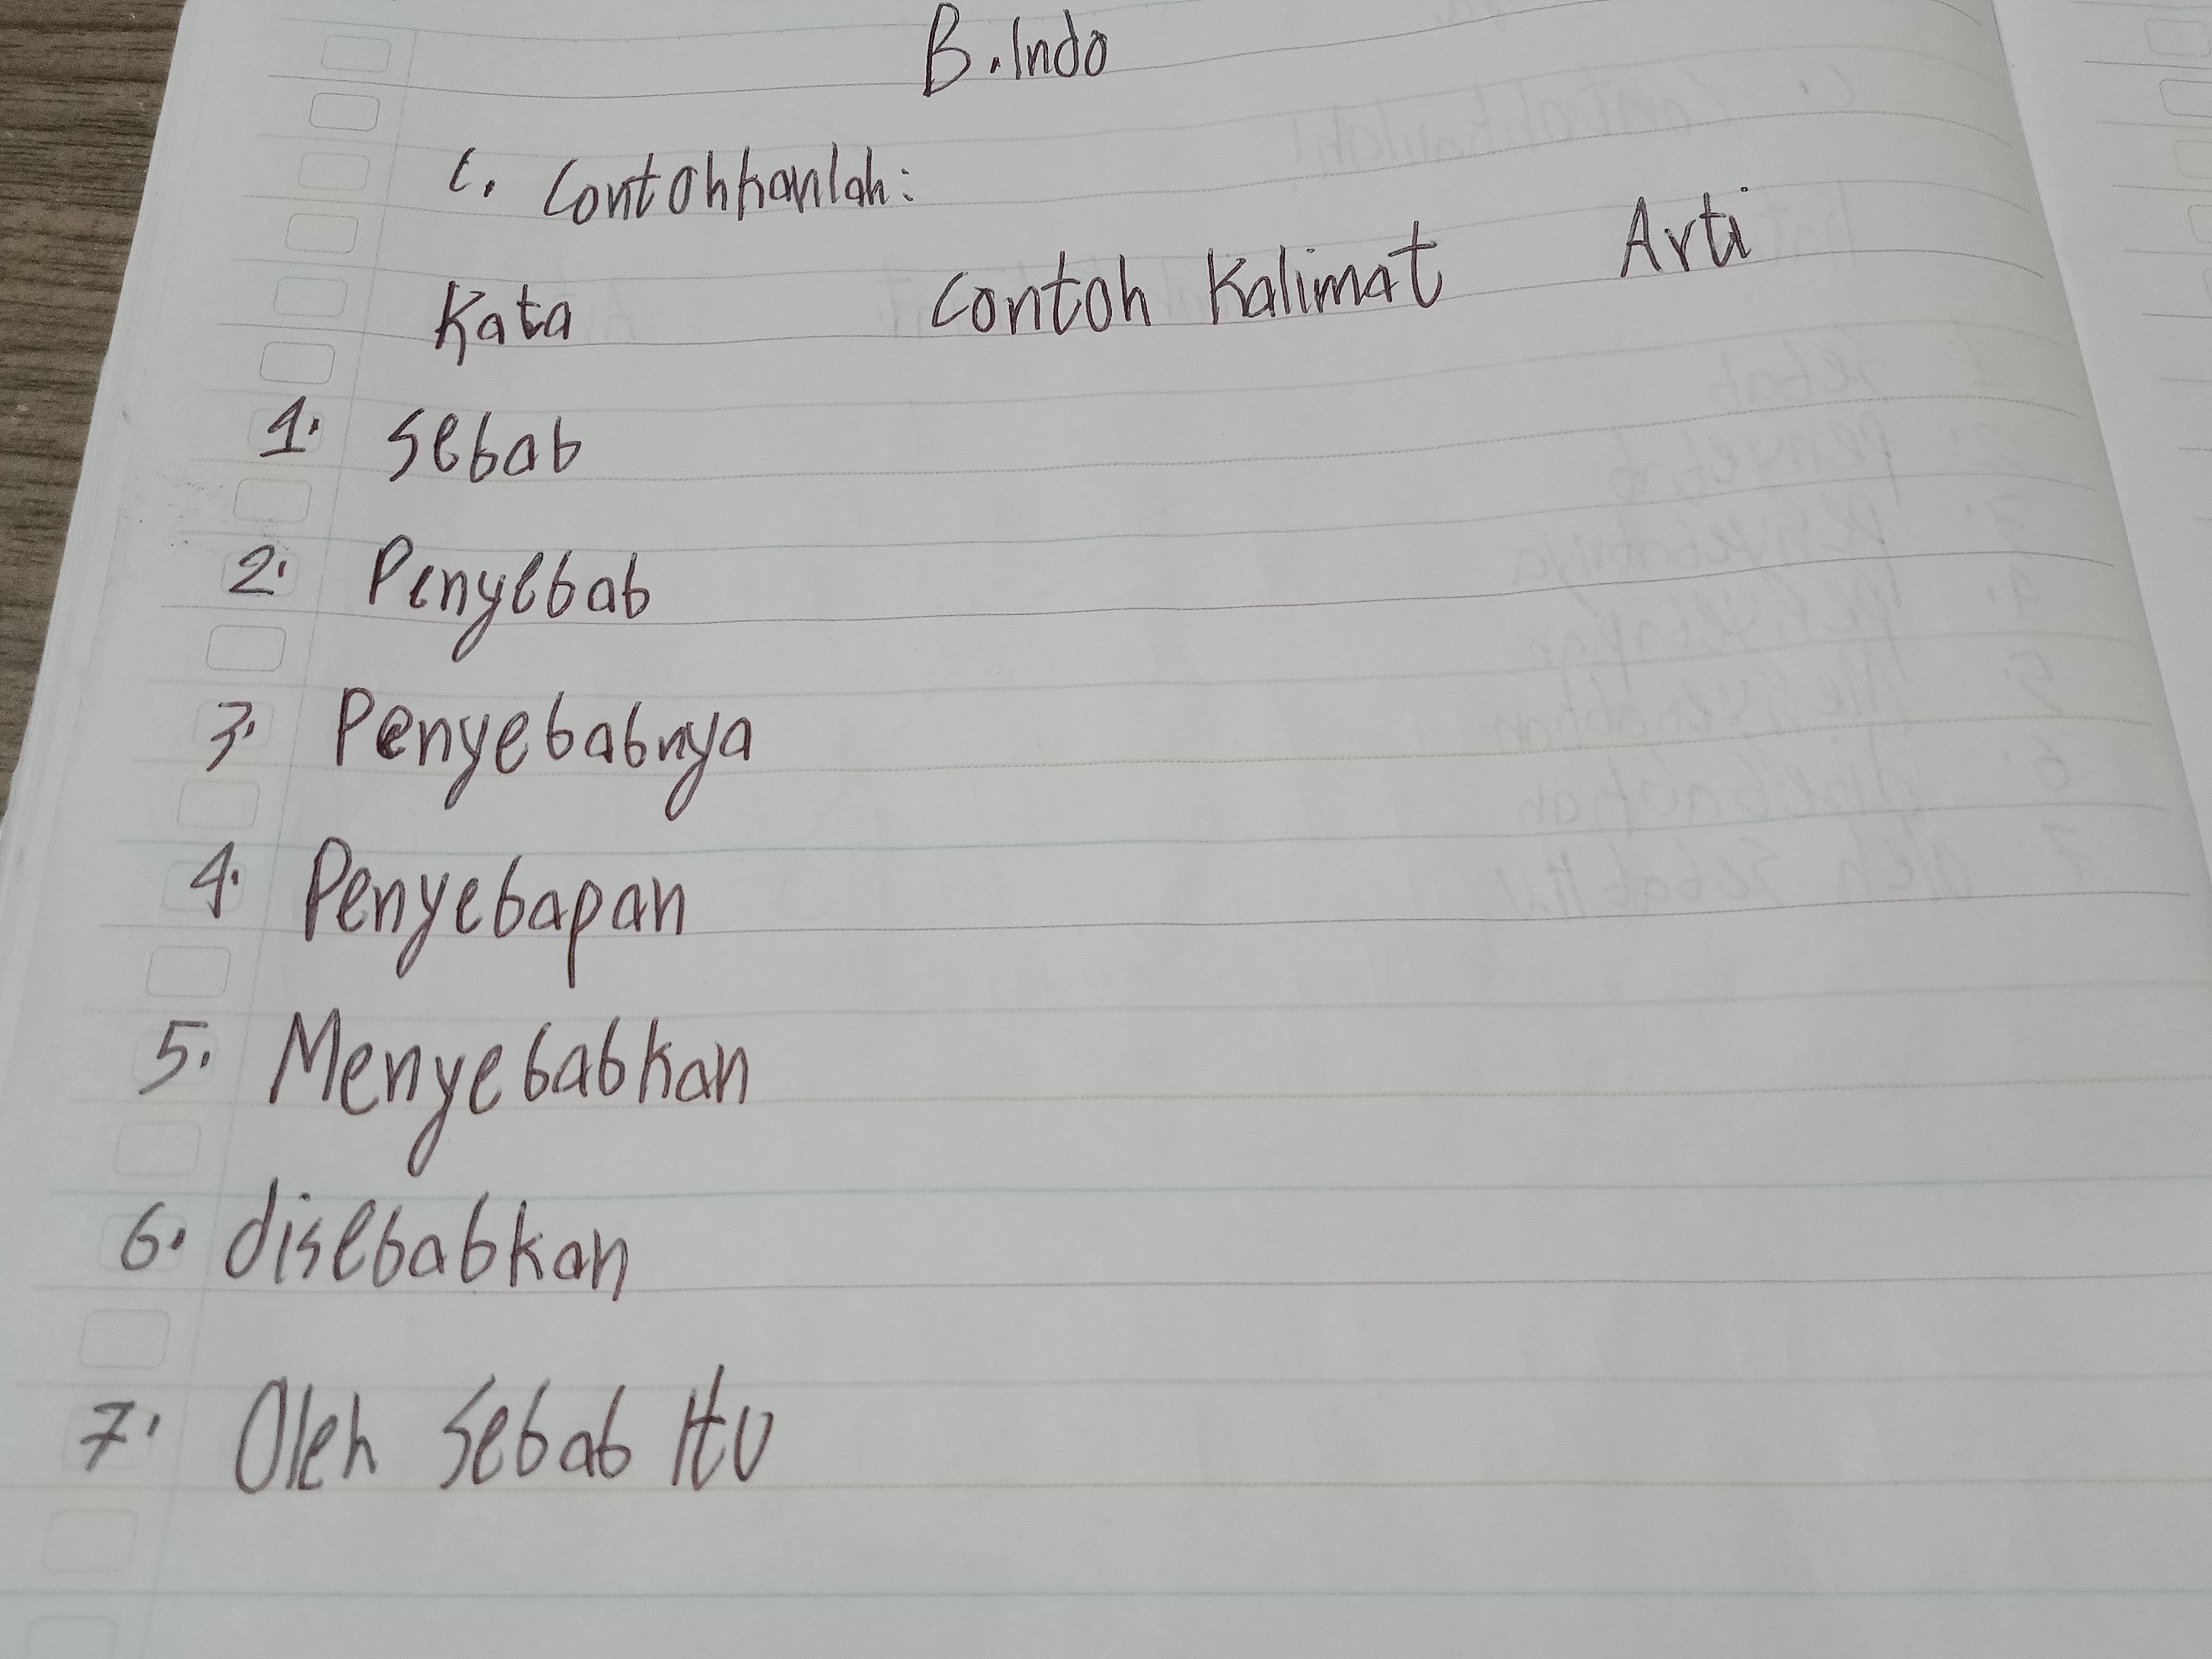 B. Indo
C. Contohkanlah:
Kata Contoh Kalimat Arti
1. Sebab
2. Penyebab
3. Penyebabnya
4. Penyebapan
5. Menyebabkan
6. disebabkan
7. Oleh Sebab Itu